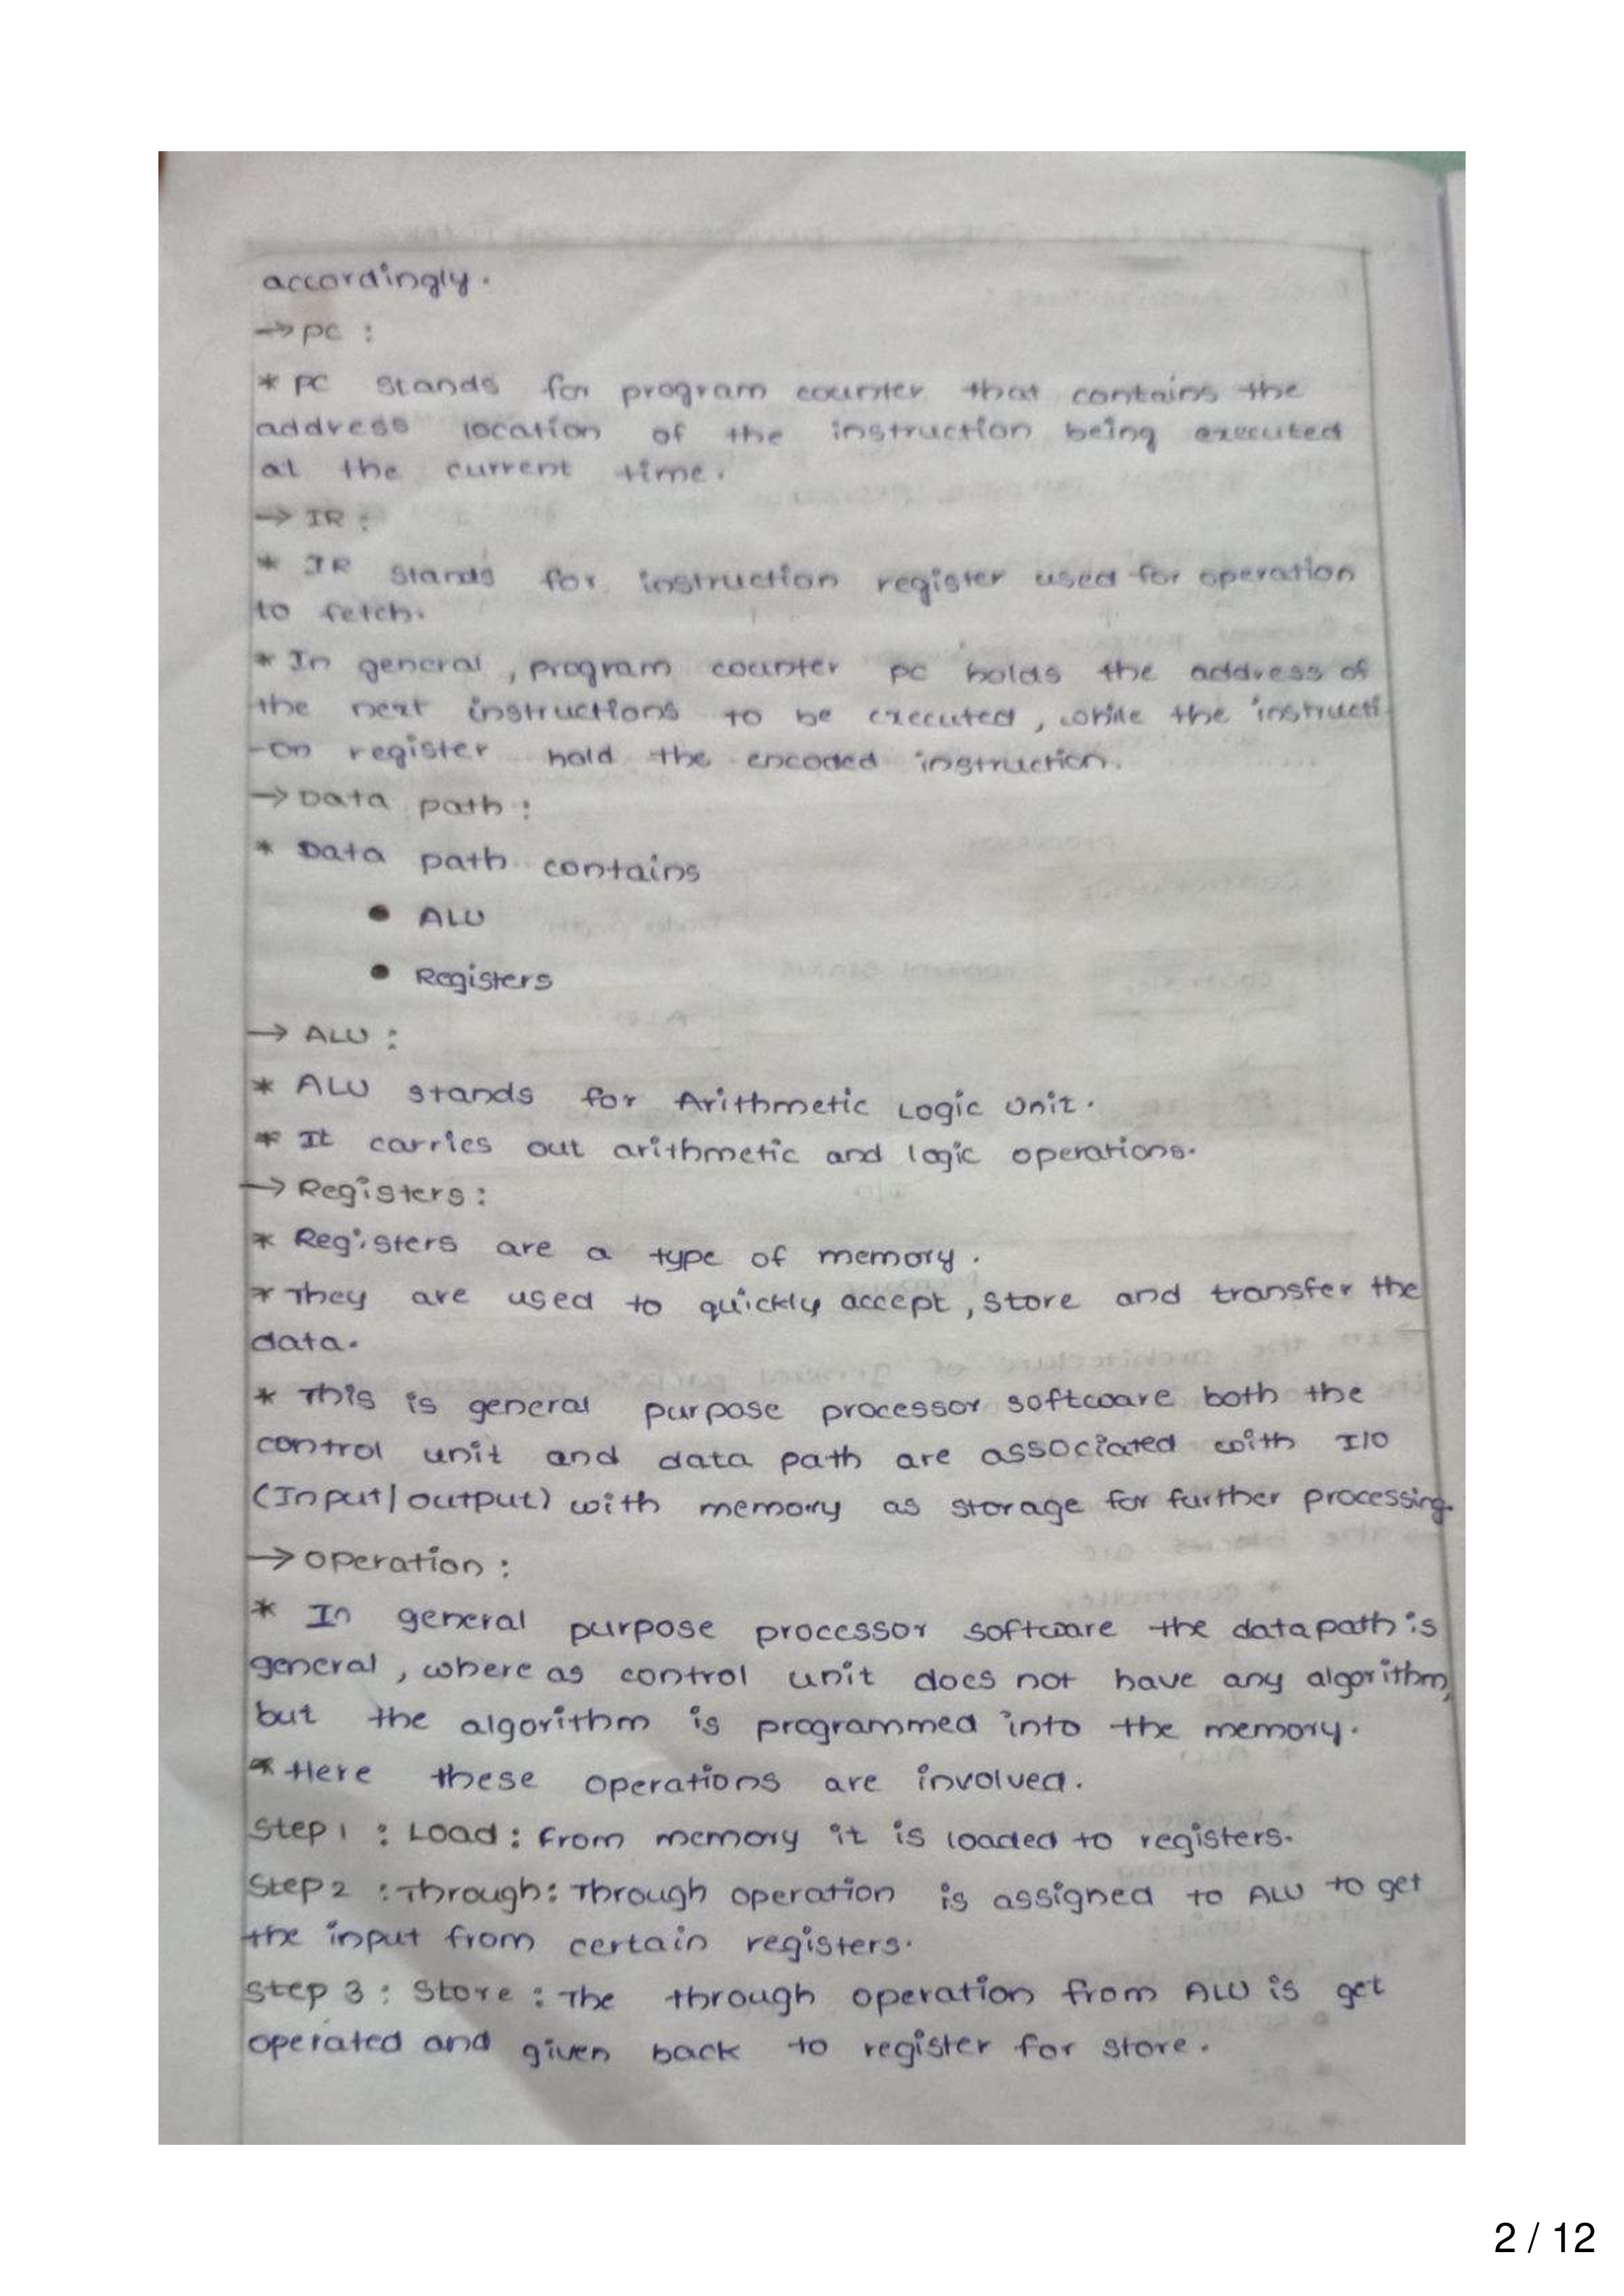 accordingly.
→ PC :
* PC stands for program counter that contains the
address location of the instruction being executed
at the current time.
→ IR :
* IR stands for instruction register used for operation
to fetch.
* In general, program counter PC holds the address of
the next instructions to be executed, while the instructi-
-on register hold the encoded instruction.
→ Data path :
* Data path contains
• ALU
• Registers
→ ALU :
* ALU stands for Arithmetic Logic Unit.
* It carries out arithmetic and logic operations.
→ Registers :
* Registers are a type of memory.
* They are used to quickly accept, store and transfer the
data.
* This is general purpose processor software both the
control unit and data path are associated with I/O
(Input/output) with memory as storage for further processing.
→ Operation :
* In general purpose processor software the datapath is
general, where as control unit does not have any algorithm,
but the algorithm is programmed into the memory.
* Here these operations are involved.
Step 1 : Load : From memory it is loaded to registers.
Step 2 : Through : Through operation is assigned to ALU to get
the input from certain registers.
Step 3 : Store : The through operation from ALU is get
operated and given back to register for store.
2 / 12